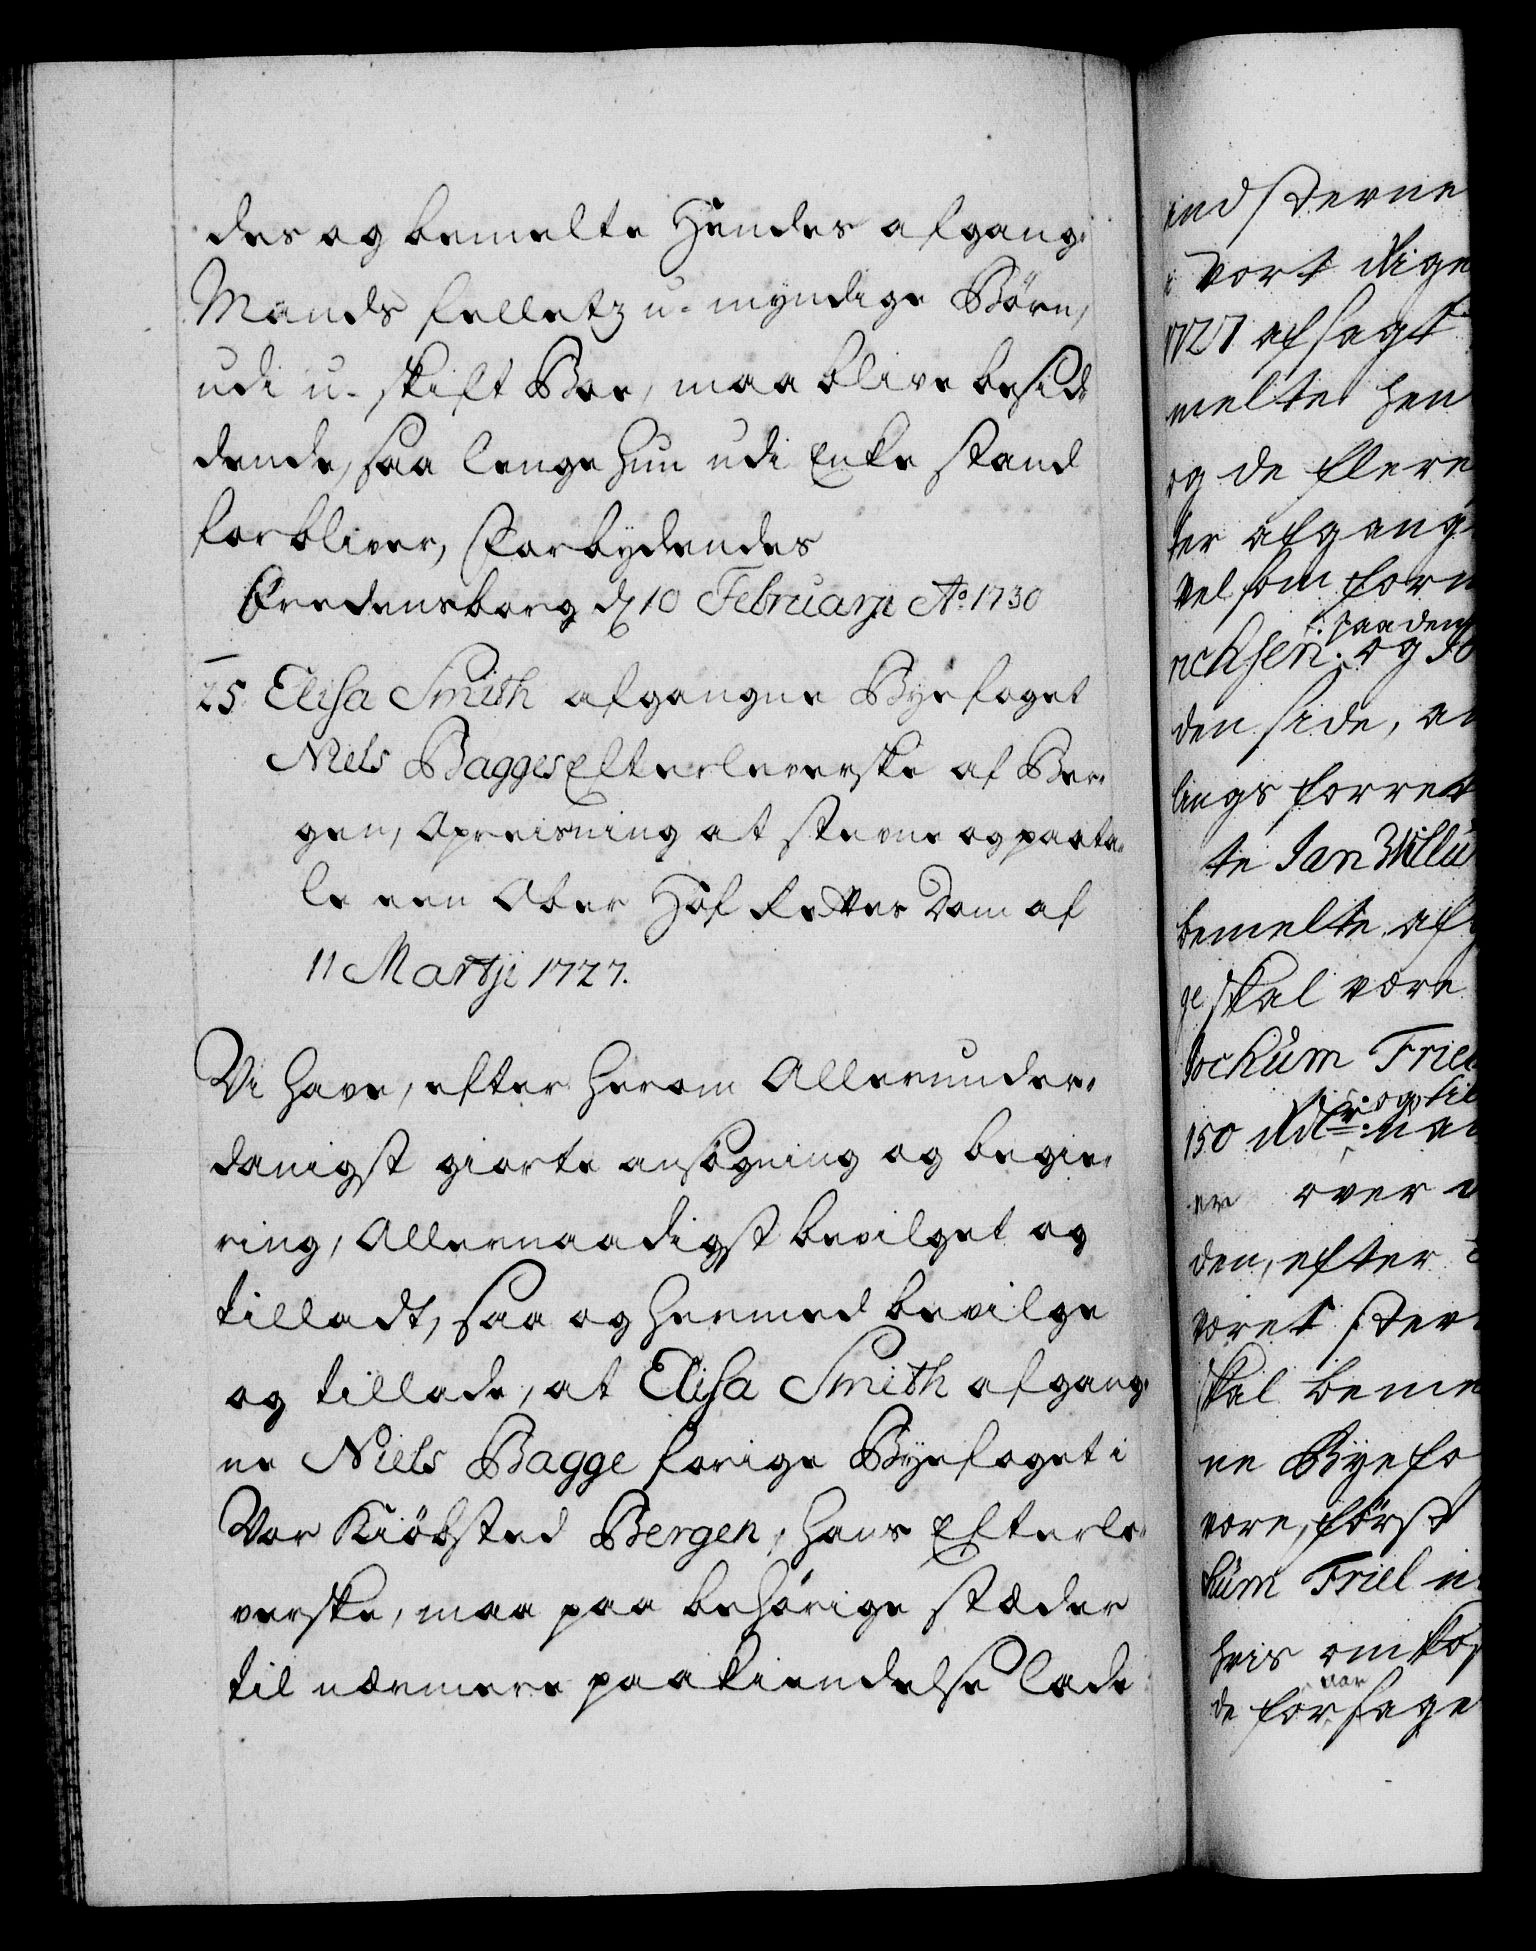 des og bemelte Hendes afgang:
Mands felletz u-myndige Börn,
udi u-skift Boe, maa blive besid-
dende, saa lenge hun udi Enke stand
forbliver, Forbydendes
Fredensborg d. 10 Februarji Ao 1730
25 Elisa Smith afgangne Byefoget
Niels Bagges Efterleverske af Ber-
gen, Opreisning at stevne og paata-
le een Ober Hof Rettes Dom af
11 Martji 1727.
Vi have, efter herom Allerunder-
danigst giorte ansögning og begie-
ring, Allernaadigst bevilget og
tilladt, saa og hermed bevilge
og tillade, at Elisa Smith afgang-
ne Niels Bagge forige Byefoget i
Vor Kiöbsted Bergen, hans Efterle-
verske, maa paa behörige stæder
til nærmere paakiendelse lade
ind stevne
vort Rige
1727 afsagt
melte hen
og de flere
ter afgang
vel som for
paa den
richsen og Jo
den side, an
lings forret
te Jan Willu
bemelte af
ge skal være
Jochum Friel
og til
150 Rdr
er over
den, efter
været stev
skal beme
ne Byefo
være, först
hum Friel
hvis omkos
var
de for sage